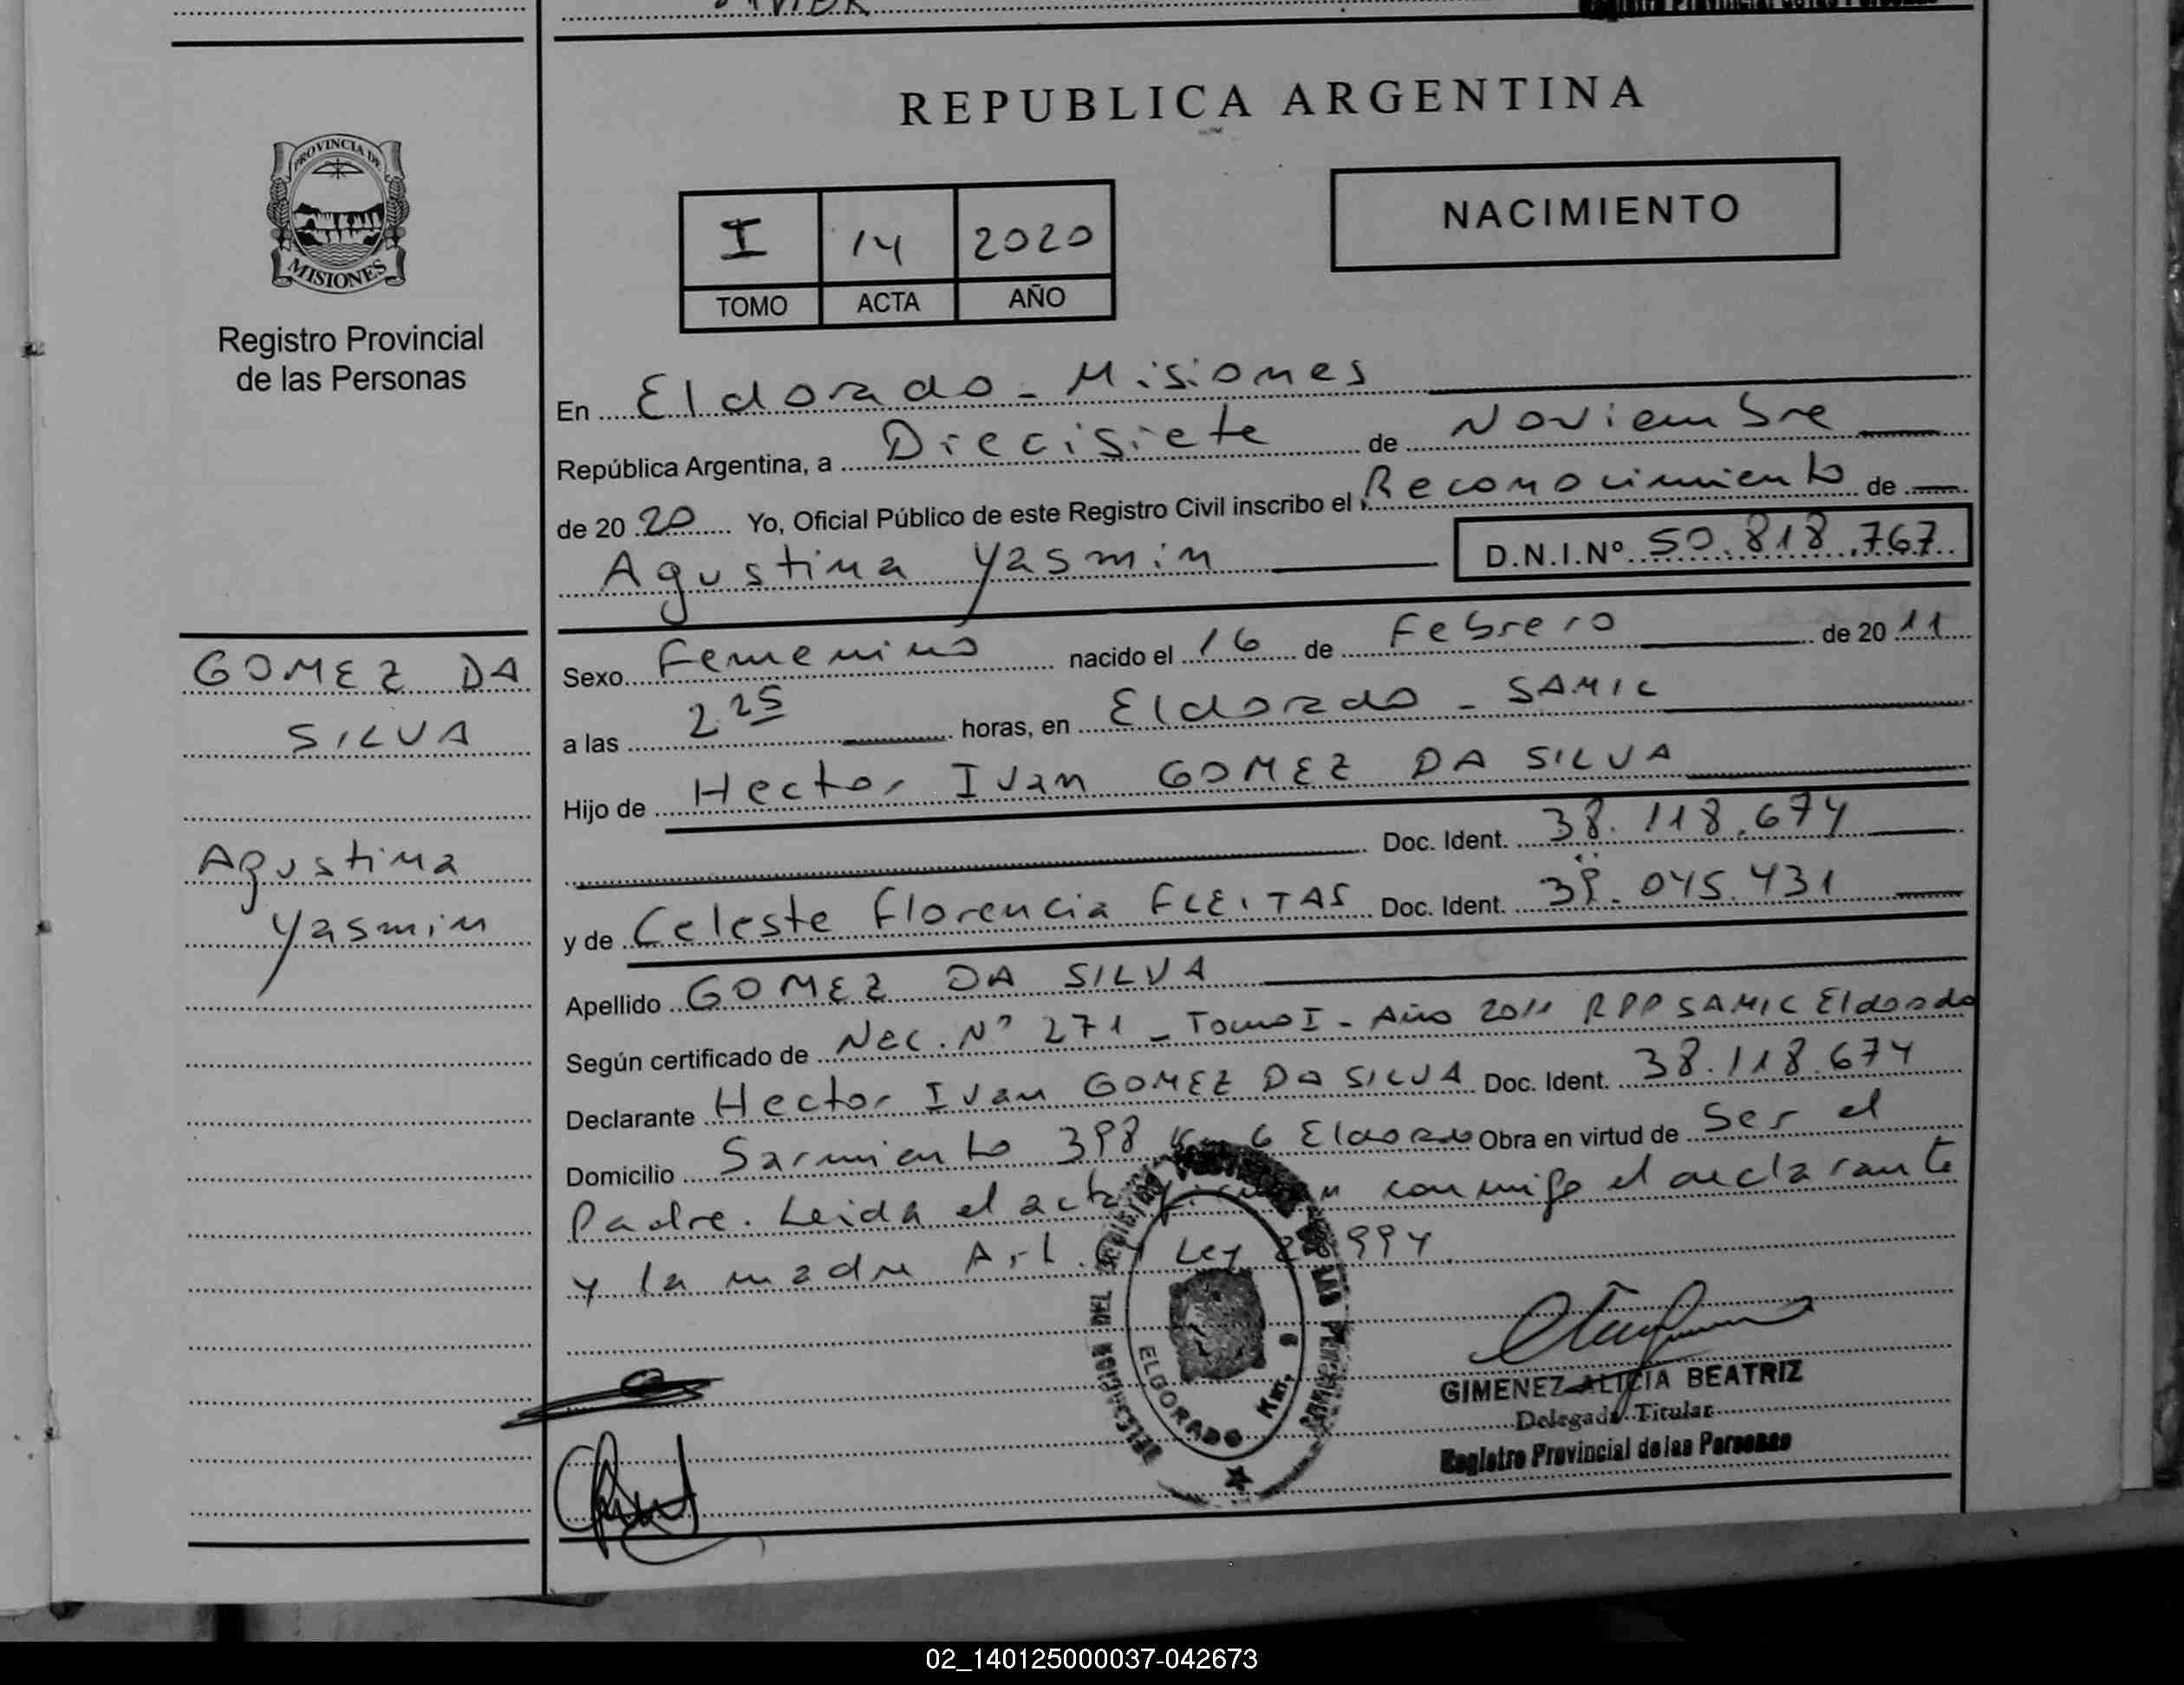 REPUBLICA ARGENTINA
PROVINCIA DE
MISIONES
Registro Provincial
de las Personas
I 14 2020
TOMO ACTA AÑO
NACIMIENTO
En Eldorado - Misiones
República Argentina, a Diecisiete de Noviembre
de 2020 Yo, Oficial Público de este Registro Civil inscribo el Reconocimiento de
Agustina Yasmin D.N.I.Nº 50.818.767
GOMEZ DA
SILVA
Agustina
Yasmin
Sexo Femenino nacido el 16 de Febrero de 2011
a las 2.25 horas, en Eldorado - SAMIC
Hijo de Hector Ivan GOMEZ DA SILVA
Doc. Ident. 38.118.674
y de Celeste Florencia FLEITAS Doc. Ident. 39.045.431
Apellido GOMEZ DA SILVA
Según certificado de Nac. Nº 271 - Tomo I - Año 2011 RPP SAMIC Eldorado
Declarante Hector Ivan GOMEZ DA SILVA Doc. Ident. 38.118.674
Domicilio Sarmiento 398 Km 6 Eldorado Obra en virtud de Ser el
Padre. Leida el acta firman conmigo el declarante
y la madre Art. Ley 994
ELDORADO Km. 9
GIMENEZ ALICIA BEATRIZ
Delegada Titular
Registro Provincial de las Personas
02_140125000037-042673